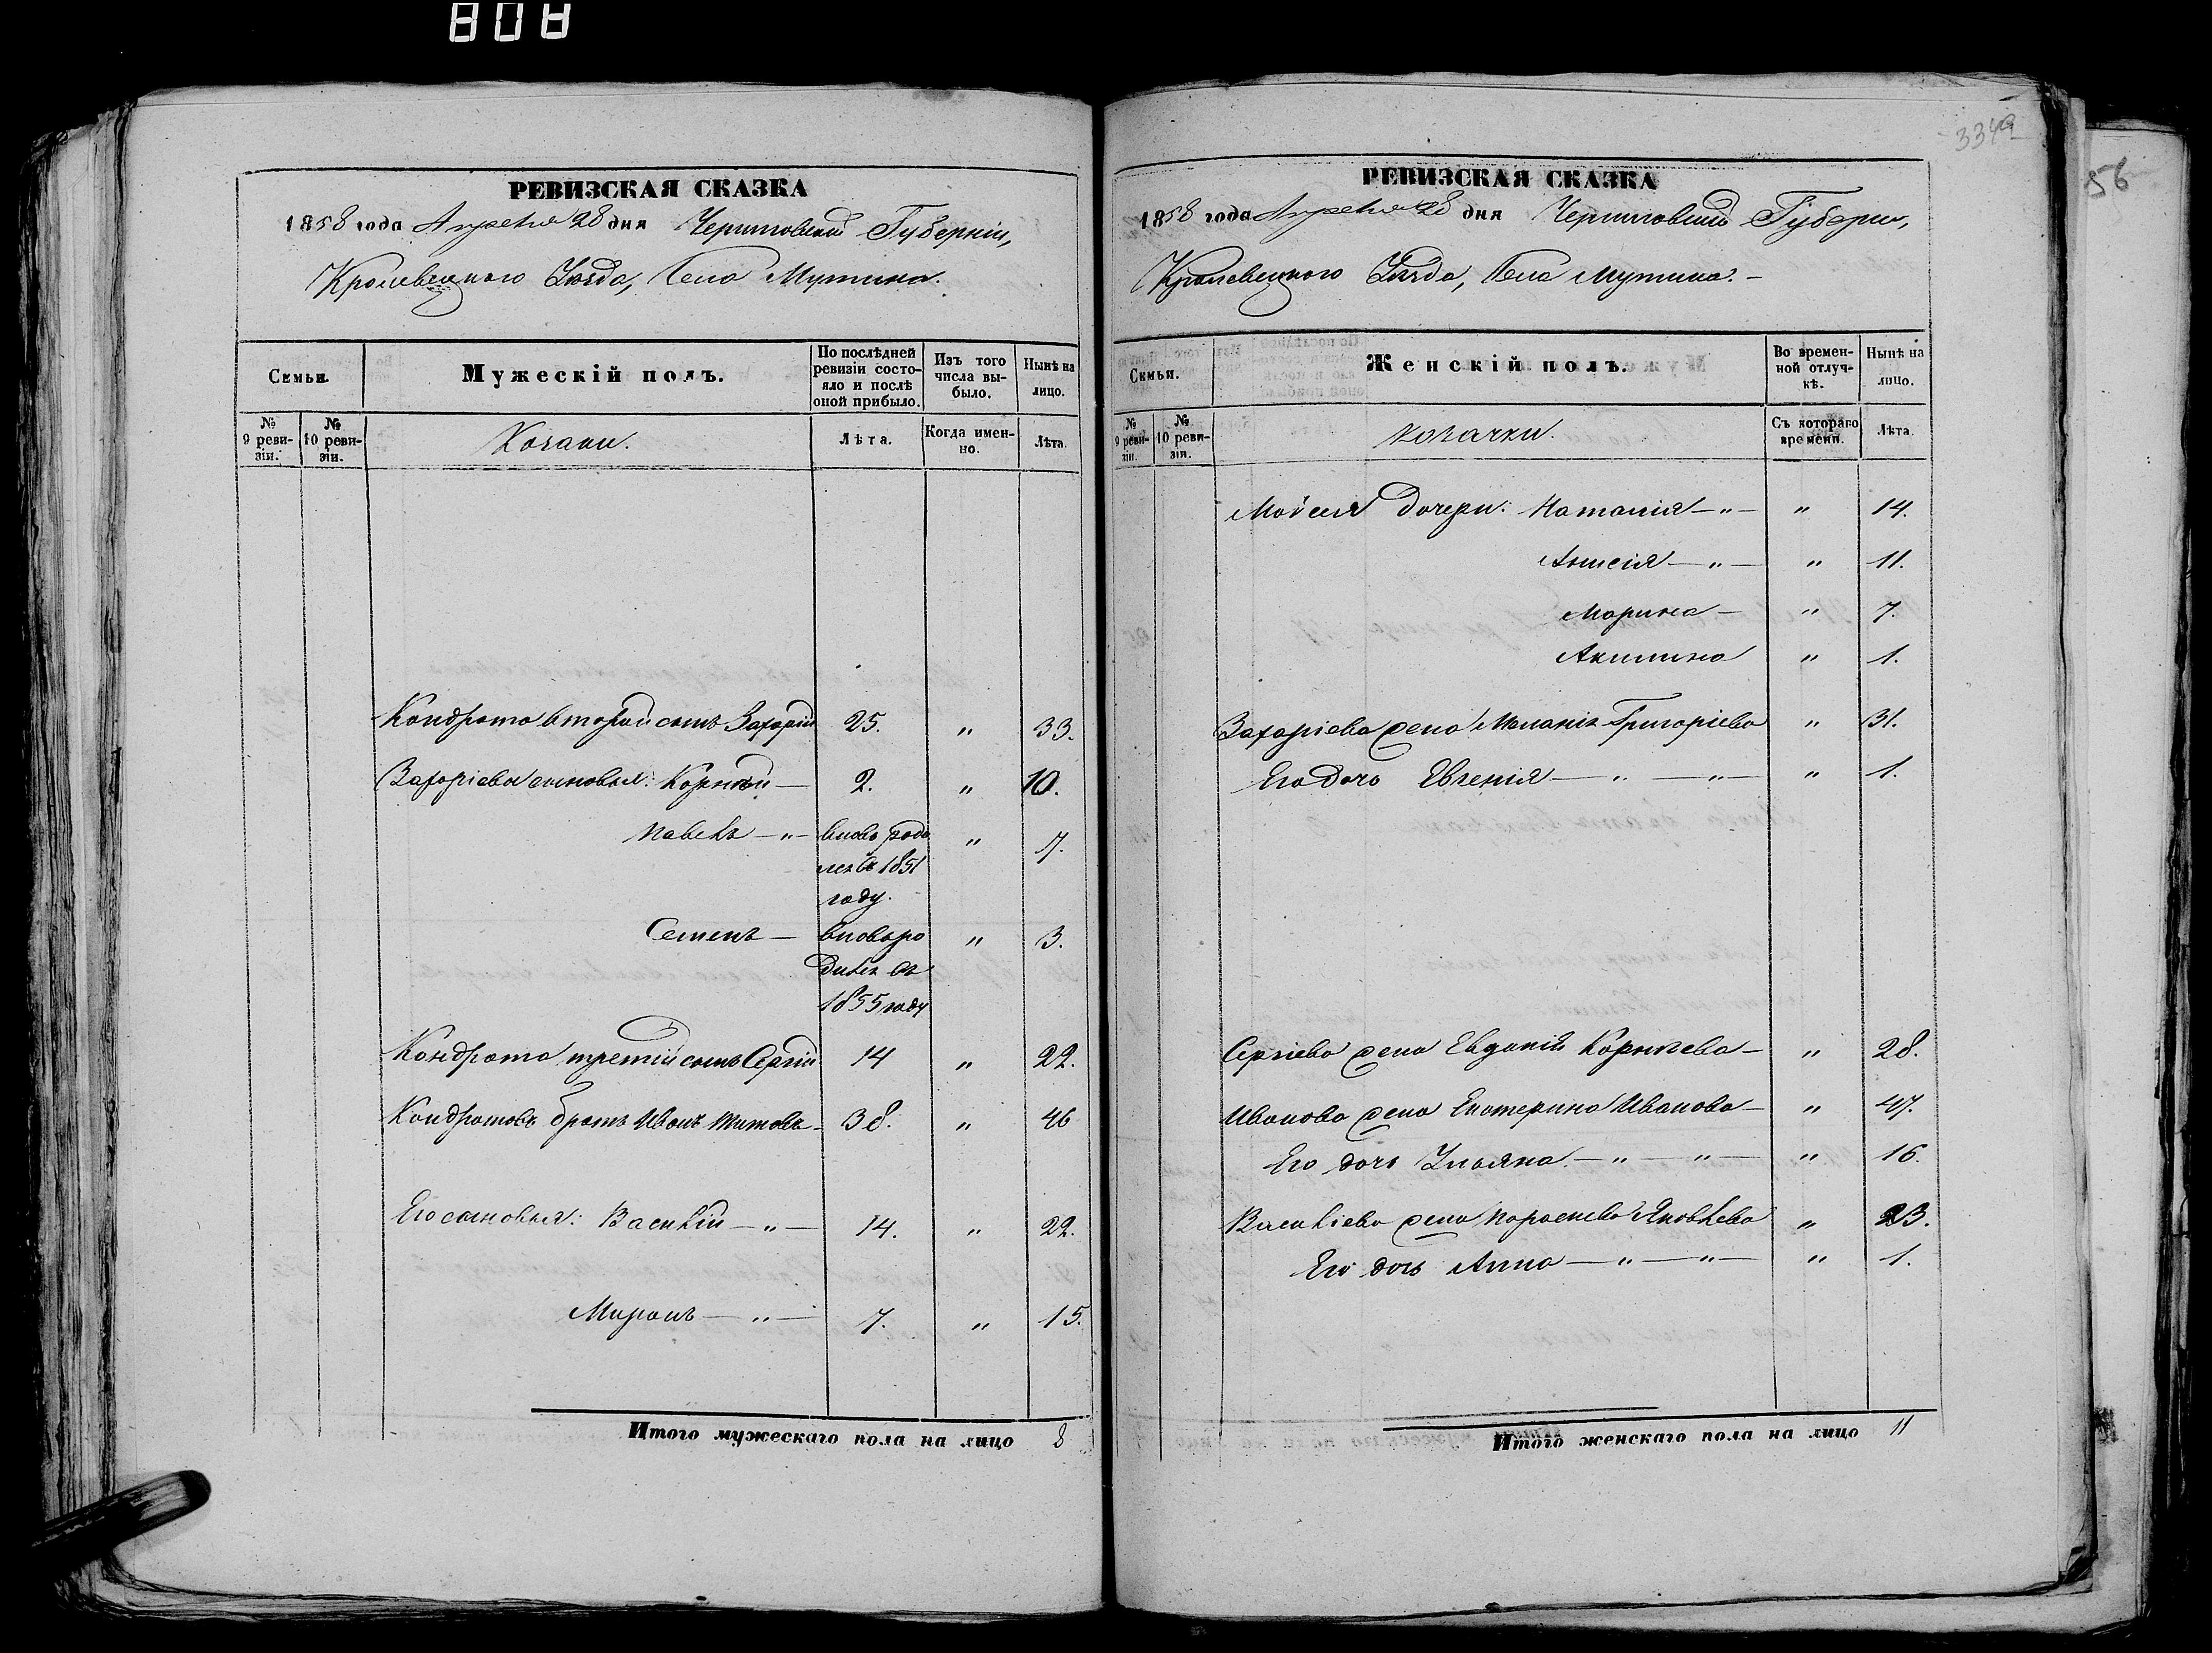 808
3349
56
РЕВИЗСКАЯ СКАЗКА
1858 года Апреля 28 дня Черниговской Губерніи,
Кролевецкого Уезда, Села Мутина.
Семьи.
Мужескій полъ.
По послѣдней ревизіи состояло и послѣ оной прибыло.
Изъ того числа выбыло.
Нынѣ на лицо.
№ 9 ревизіи.
№ 10 ревизіи.
Козаки.
Лѣта.
Когда именно.
Лѣта.
Кондрата вторый сынъ Захарій 25. " 33.
Захаріевы сыновья: Корній — 2. " 10.
Павелъ — " — вновь роди " 7.
лся въ 1851
году.
Семенъ — вновь ро " 3.
дился въ
1855 году
Кондрата третій сынъ Сергій 14 " 22.
Кондратовъ братъ Иванъ Титовъ 38. " 46
Его сыновья: Василій — " — 14. " 22.
Миронъ — " — 7. " 15.
Итого мужескаго пола на лицо 8
РЕВИЗСКАЯ СКАЗКА
1858 года Апреля 28 дня Черниговской Губерн,
Кролевецкого Уезда, Села Мутина. —
Семьи.
Женскій полъ.
Во временной отлучкѣ.
Нынѣ на лицо.
№ 9 ревизіи.
№ 10 ревизіи.
Козачки.
Съ котораго времени.
Лѣта.
Мойсея дочери: Наталія — " — " 14.
Анисія — " — " 11.
Марина — " 7.
Акилина " 1.
Захаріева жена Меланія Григоріева " 31.
Его дочь Евгенія — " — " — " 1.
Сергіева жена Евдокія Корніева — " 28.
Иванова жена Екатерина Иванова — " 47.
Его дочь Ульяна. — " — " — " 16.
Василіева жена Параскева Яковлева " 23.
Его дочь Анна — " — " — " 1.
Итого женскаго пола на лицо 11